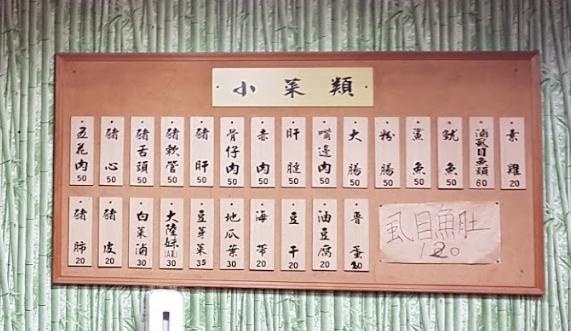 小菜類
五花肉 50
豬心 50
豬舌頭 50
豬軟管 50
豬肝 50
骨仔肉 50
赤肉 50
肝腱 50
嘴邊肉 50
大腸 50
粉腸 50
鯊魚 50
魷魚 50
滷虱目魚頭 60
素雞 20
豬肺 20
豬皮 20
白菜滷 30
大陸妹 30
豆芽菜 35
地瓜葉 30
海帶 20
豆干 20
油豆腐 20
魯蛋
虱目魚肚
120